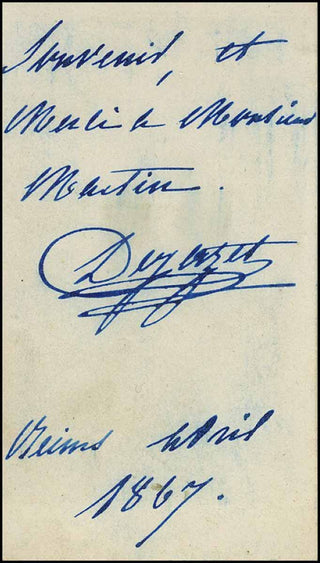 Souvenir, et
Merci a Monsieur
Martin.
Dejazet
Reims avril
1867.